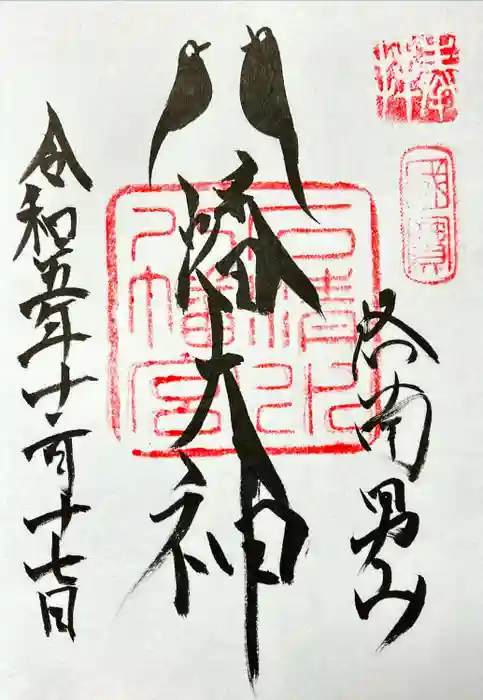 奉拝
國寶
洛南男山
八幡大神
石清水
八幡宮
令和五年十二月十七日